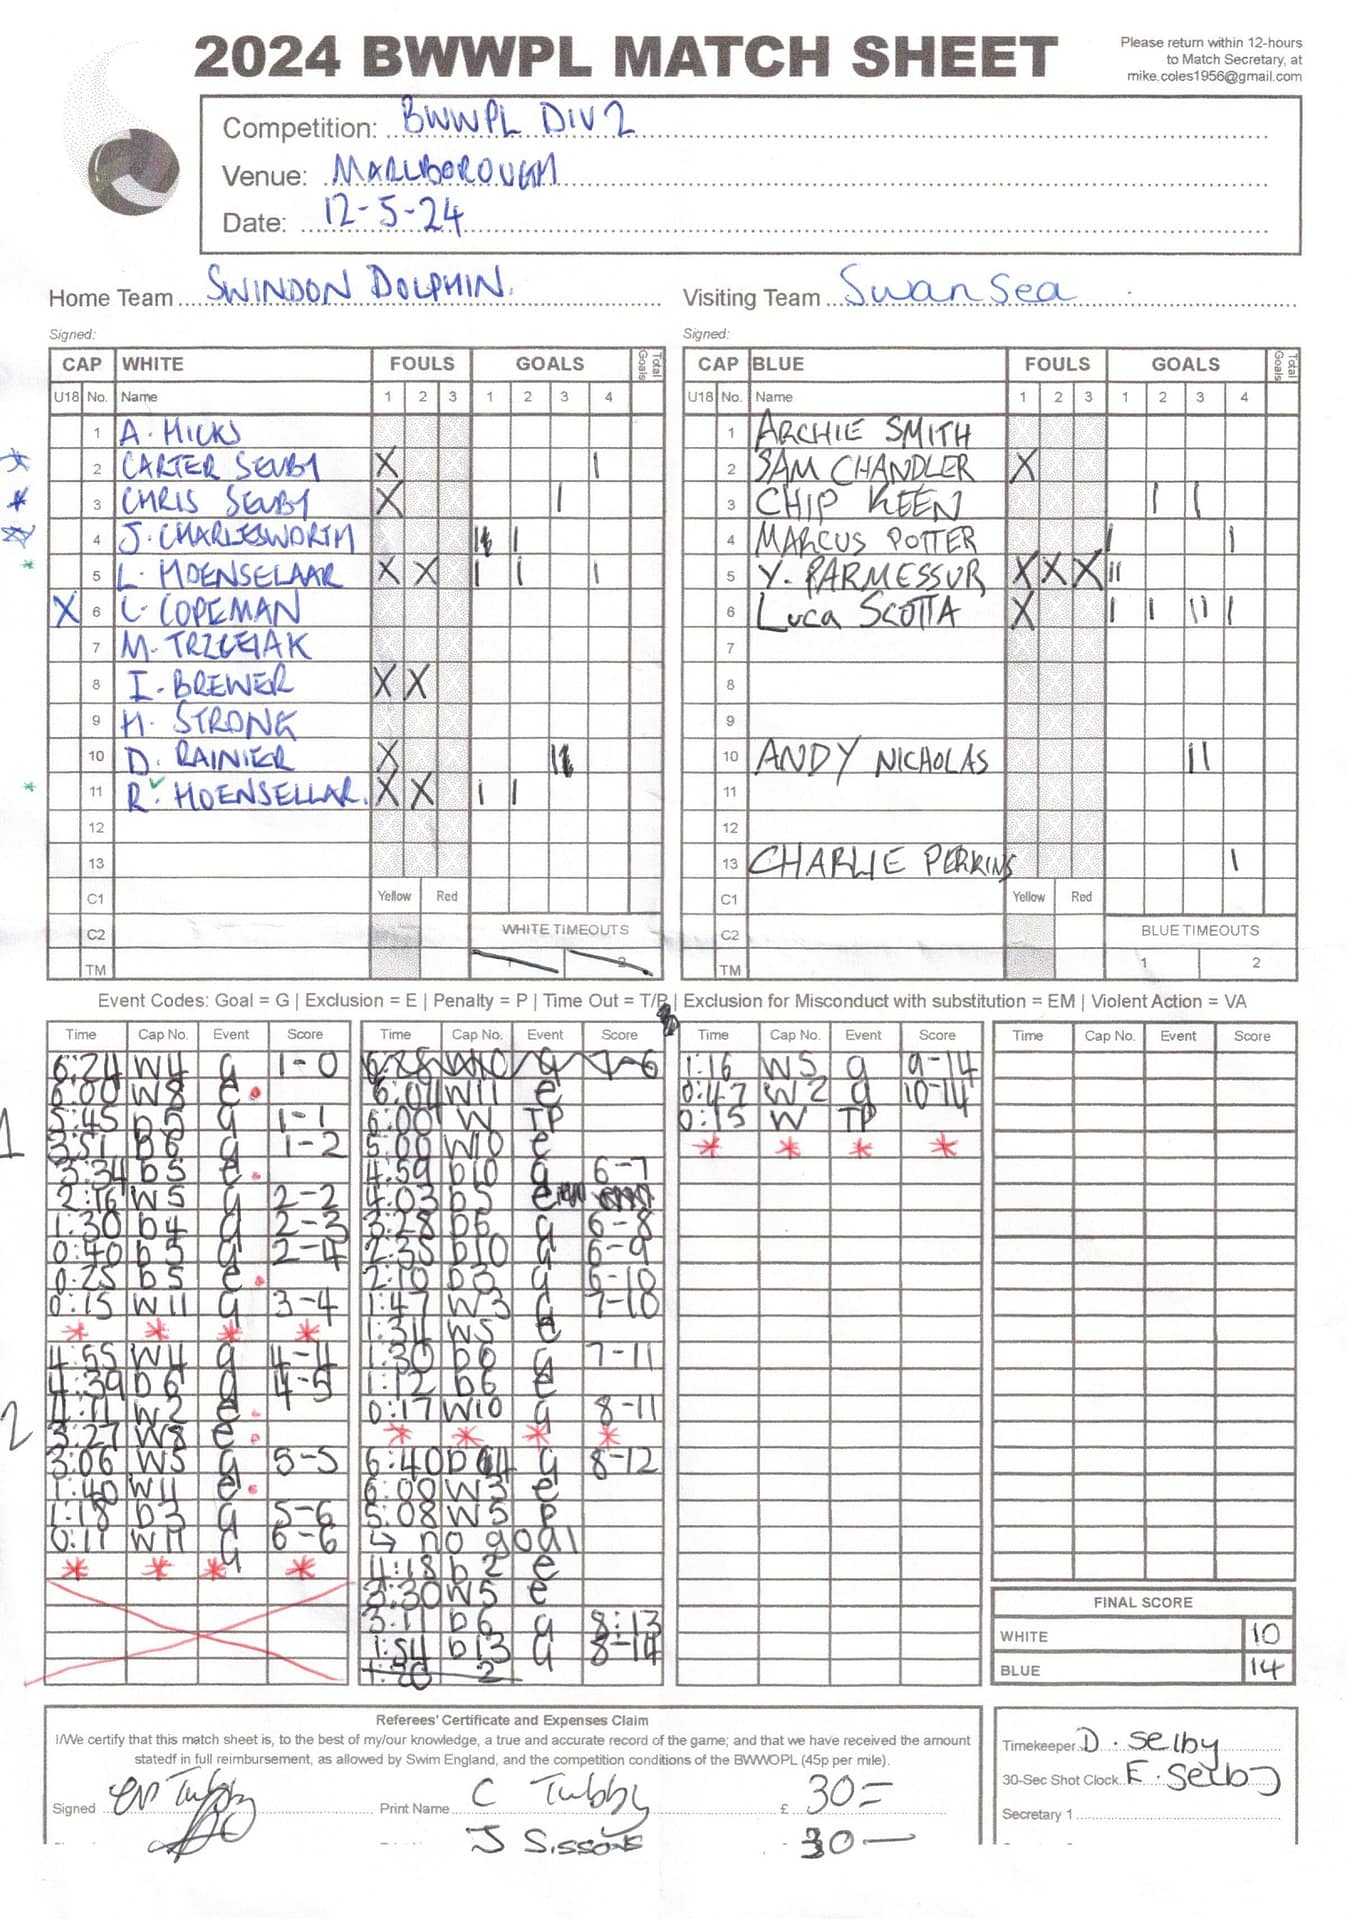 2024 BWWPL MATCH SHEET
Please return within 12-hours
to Match Secretary, at
mike.coles1956@gmail.com
Competition: BWWPL DIV 2
Venue: MARLBOROUGH
Date: 12-5-24
Home Team SWINDON DOLPHIN. Visiting Team Swansea
Signed: Signed:
CAP WHITE FOULS GOALS Total Goals CAP BLUE FOULS GOALS Total Goals
U18 No. Name 1 2 3 1 2 3 4 U18 No. Name 1 2 3 1 2 3 4
1 A. HICKS 1 ARCHIE SMITH
2 CARTER SELBY X | 2 SAM CHANDLER X
3 CHRIS SELBY X | 3 CHIP KEEN | |
4 J. CHARLESWORTH | | 4 MARCUS POTTER | |
5 L. HOENSELAAR X X | | | 5 Y. PARMESSUR X X X ||
X 6 C. COPEMAN 6 Luca SCOTTA X | | || |
7 M. 7
8 I. BREWER X X 8
9 H. STRONG 9
10 D. RAINIER X || 10 ANDY NICHOLAS ||
11 R. HOENSELLAR. X X | | 11
12 12
13 13 CHARLIE PERKINS |
C1 Yellow Red C1 Yellow Red
C2 WHITE TIMEOUTS C2 BLUE TIMEOUTS
TM 1 2 TM 1 2
Event Codes: Goal = G | Exclusion = E | Penalty = P | Time Out = T/P | Exclusion for Misconduct with substitution = EM | Violent Action = VA
Time Cap No. Event Score
6:24 W4 g 1-0
6:00 W8 e
5:45 b5 g 1-1
1
3:51 b6 g 1-2
3:34 b5 e
2:16 W5 g 2-2
1:30 b4 g 2-3
0:40 b5 g 2-4
0:25 b5 e
0:15 W11 g 3-4
* * * *
4:55 W4 g 4-4
4:39 b6 g 4-5
4:11 W2 e
2
3:27 W8 e
3:06 W5 g 5-5
1:40 W11 e
1:18 b3 g 5-6
0:11 W11 g 6-6
* * * *
Time Cap No. Event Score
3
6:28 W10 g 7-6
6:04 W11 e
6:00 W TP
5:00 W10 e
4:59 b10 g 6-7
4:03 b5 e
3:28 b6 g 6-8
2:35 b10 g 6-9
2:10 b3 g 6-10
1:47 W3 g 7-10
1:31 W5 e
1:30 b6 g 7-11
1:12 b6 e
0:17 W10 g 8-11
* * * *
6:40 b4 g 8-12
6:00 W3 e
5:08 W5 P
↳ no goal
4:18 b2 e
3:30 W5 e
3:11 b6 g 8:13
1:54 b13 g 8-14
1:20 2
Time Cap No. Event Score
1:16 W5 g 9-14
0:47 W2 g 10-14
0:15 W TP
* * * *
Time Cap No. Event Score
FINAL SCORE
WHITE 10
BLUE 14
Referees' Certificate and Expenses Claim
I/We certify that this match sheet is, to the best of my/our knowledge, a true and accurate record of the game; and that we have received the amount
statedf in full reimbursement, as allowed by Swim England, and the competition conditions of the BWWOPL (45p per mile).
Signed Print Name C Tubby £ 30=
J Sissons 30—
Timekeeper D. Selby
30-Sec Shot Clock E. Selby
Secretary 1